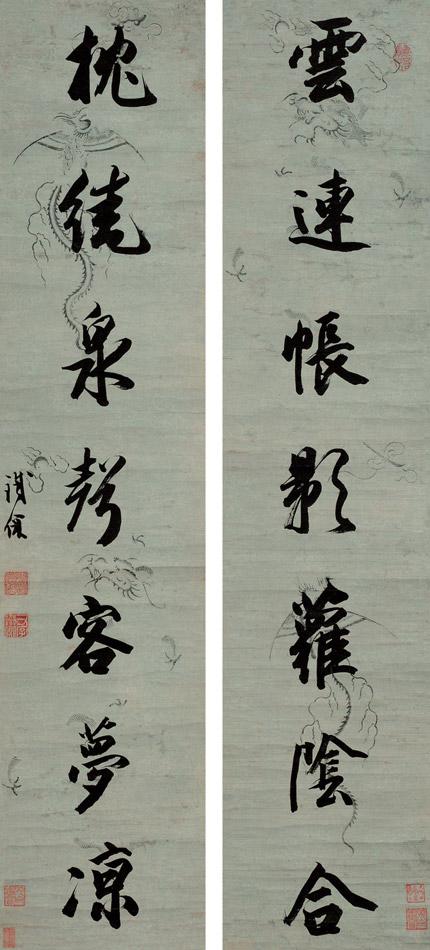 雲連帳影蘿陰合
枕繞泉聲客夢涼
鐵保